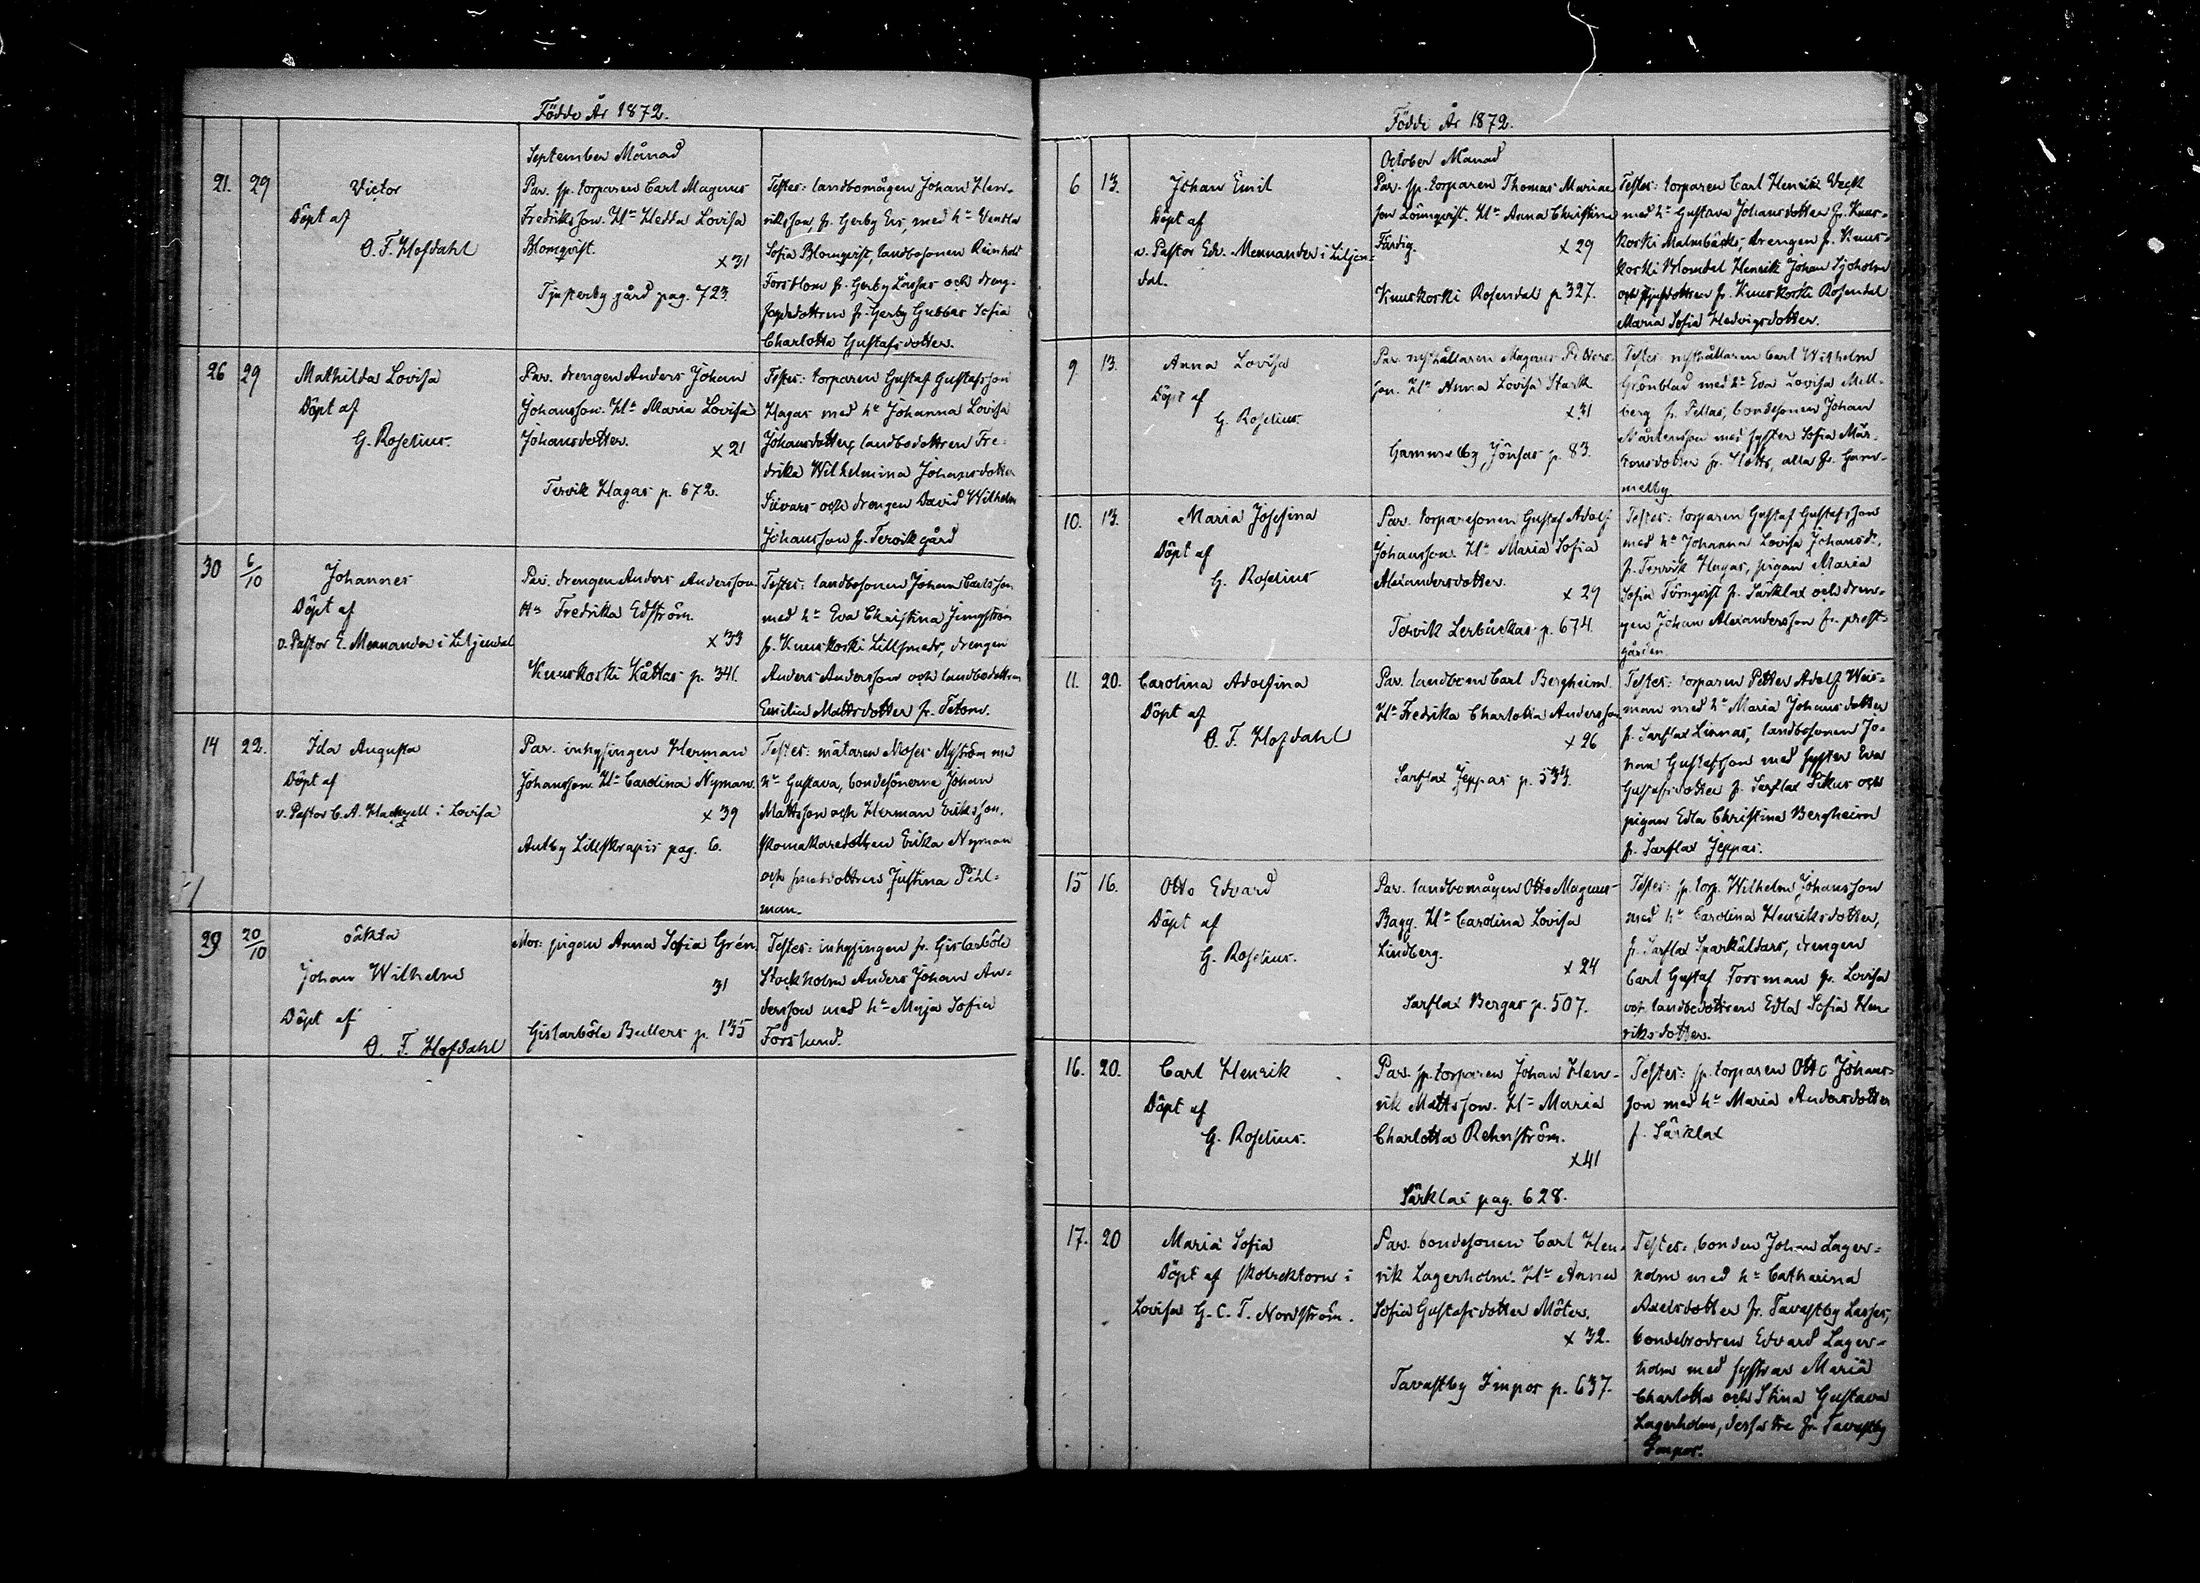 Födde År 1872.
September Månad
21. 29 Victor
Döpt af
O. F. Hofdahl
Par. sp. torparen Carl Magnus
Fredriksson. Hu Hedda Lovisa
Blomqvist.
x 31
Tjusterby gård pag. 723.
Testes: landbomågen Johan Hen-
riksson, fr. Gerby Ers, med hu Vendla
Sofia Blomqvist, landbosonen Reinholt
Forsblom fr. Gerby Lassas och dreng-
fogdedottren fr. Gerby Gubbas Sofia
Charlotta Gustafsdotter.
26 29 Mathilda Lovisa
Döpt af
G. Roselius.
Par. drengen Anders Johan
Johansson. Hu Maria Lovisa
Johansdotter.
x 21
Tervik Hagas p. 672.
Testes: torparen Gustaf Gustafsson
Hagas med hu Johanna Lovisa
Johansdotter, landbodottren Fre-
drika Wilhelmina Johansdotter
Siivars och drengen David Wilhelm
Johansson fr. Tervik gård
30 6/10 Johannes
Döpt af
v. Pastor E. Mennander i Liljendal
Par. drengen Anders Andersson
Hu Fredrika Edström.
x 33
Kuuskoski Kåttas p. 341.
Testes: landbosonen Johan Carlsson
med hu Eva Christina Ljungström
fr. Kuuskoski Lillsmeds, drengen
Anders Andersson och landbodottren
Emilia Mattsdotter fr. Tetom.
14 22. Ida Augusta
Döpt af
v. Pastor C. A. Hackzell i Lovisa
Par. inhysingen Herman
Johansson. Hu Carolina Nyman.
x 39
Antby Lillskrapis pag. 6.
Testes: mätaren Moses Nyström med
hu Gustava, bondesönerna Johan
Mattsson och Herman Eriksson,
skomakaredottren Erika Nyman
och smedsdottren Justina Pihl-
man.
29 20/10 oäkta
Johan Wilhelm
Döpt af
O. F. Hofdahl
Mor: pigan Anna Sofia Grén.
31
Gislarböle Bullers p. 135
Testes: inhysingen fr. Gislarböle
Stockholm Anders Johan An-
dersson med hu Maja Sofia
Forslund.
Födde År 1872.
October Månad
6 13. Johan Emil
Döpt af
v. Pastor Edv. Mennander i Liljen-
dal.
Par. sp. torparen Thomas Marian
son Lönnqvist. Hu Anna Christina
Färdig.
x 29
Kuuskoski Rosendal p. 327.
Testes: torparen Carl Henrik Veck
med hu Gustava Johansdotter fr. Kuus-
koski Malmbäcks, drengen fr. Kuus-
koski Blomdal Henrik Johan Sjöholm
och hjonsdottren fr. Kuuskoski Rosendal
Maria Sofia Hedvigsdotter.
9 13. Anna Lovisa
Döpt af
G. Roselius.
Par. nyshållaren Magnus Petters-
son. Hu Anna Lovisa Stark
x 31
Gammelby Jönsas p. 83.
Testes: nyshållaren Carl Wilhelm
Grönblad med hu Eva Lovisa Mell-
berg fr. Pellas, bondesonen Johan
Mårtensson med syster Sofia Mår-
tensdotter fr. Klotts, alla fr. Gam-
melby.
10. 13. Maria Josefina
Döpt af
G. Roselius
Par. torparesonen Gustaf Adolf
Johansson. Hu Maria Sofia
Alexandersdotter.
x 29
Tervik Lerbackas p. 674.
Testes: torparen Gustaf Gustafsson
med hu Johanna Lovisa Johansd.
fr. Tervik Hagas, pigan Maria
Sofia Törnqvist fr. Särklax och dren-
gen Johan Alexandersson fr. prest-
gården.
11. 20. Carolina Adolfina
Döpt af
O. F. Hofdahl
Par. landbon Carl Bergheim.
Hu Fredrika Charlotta Andersson.
x 26
Sarflax Jeppas p. 533.
Testes: torparen Petter Adolf Weis-
man med hu Maria Johansdotter
fr. Sarflax Linnas, landbosonen Jo-
han Gustafsson med syster Eva
Gustafsdotter fr. Sarflax Fikus och
pigan Edla Christina Bergheim
fr. Sarflax Jeppas.
15 16. Otto Edvard
Döpt af
G. Roselius.
Par. landbomågen Otto Magnus
Bagg. Hu Carolina Lovisa
Lindberg.
x 24
Sarflax Bergas p. 507.
Testes: sp. torp. Wilhelm Johansson
med hu Carolina Henriksdotter,
fr. Sarflax Sparkuldars, drengen
Carl Gustaf Forsman fr. Lovisa
och landbodottren Edla Sofia Hen-
riksdotter.
16. 20. Carl Henrik
Döpt af
G. Roselius.
Par. sp. torparen Johan Hen-
rik Mattsson. Hu Maria
Charlotta Rehnström.
x 41
Särklax pag. 628.
Testes: sp. torparen Otto Johans-
son med hu Maria Andersdotter
f. Särklax
17. 20 Maria Sofia
Döpt af skolrektorn i
Lovisa G. C. T. Nordström.
Par. bondesonen Carl Hen-
rik Lagerholm. Hu Anna
Sofia Gustafsdotter Möter.
x 32.
Tavastby Impos p. 637.
Testes: bonden Johan Lager-
holm med hu Catharina
Axelsdotter fr. Tavastby Lasses,
bondebrodren Edvard Lager-
holm med systrar Maria
Charlotta och Stina Gustava
Lagerholm, dessa tre fr. Tavastby
Impos.